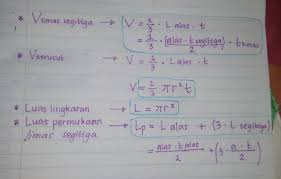 * Vlimas segitiga → V = 1/3 · L alas · t
= 1/3 · (alas · t segitiga)/2 · t limas
* Vkerucut → V = 1/3 · L alas · t
V = 1/3 πr² t
* Luas lingkaran → L = πr²
* Luas permukaan limas segitiga → Lp = L alas + (3 · L segitiga)
= (alas · t alas)/2 + (3 · a · t/2)